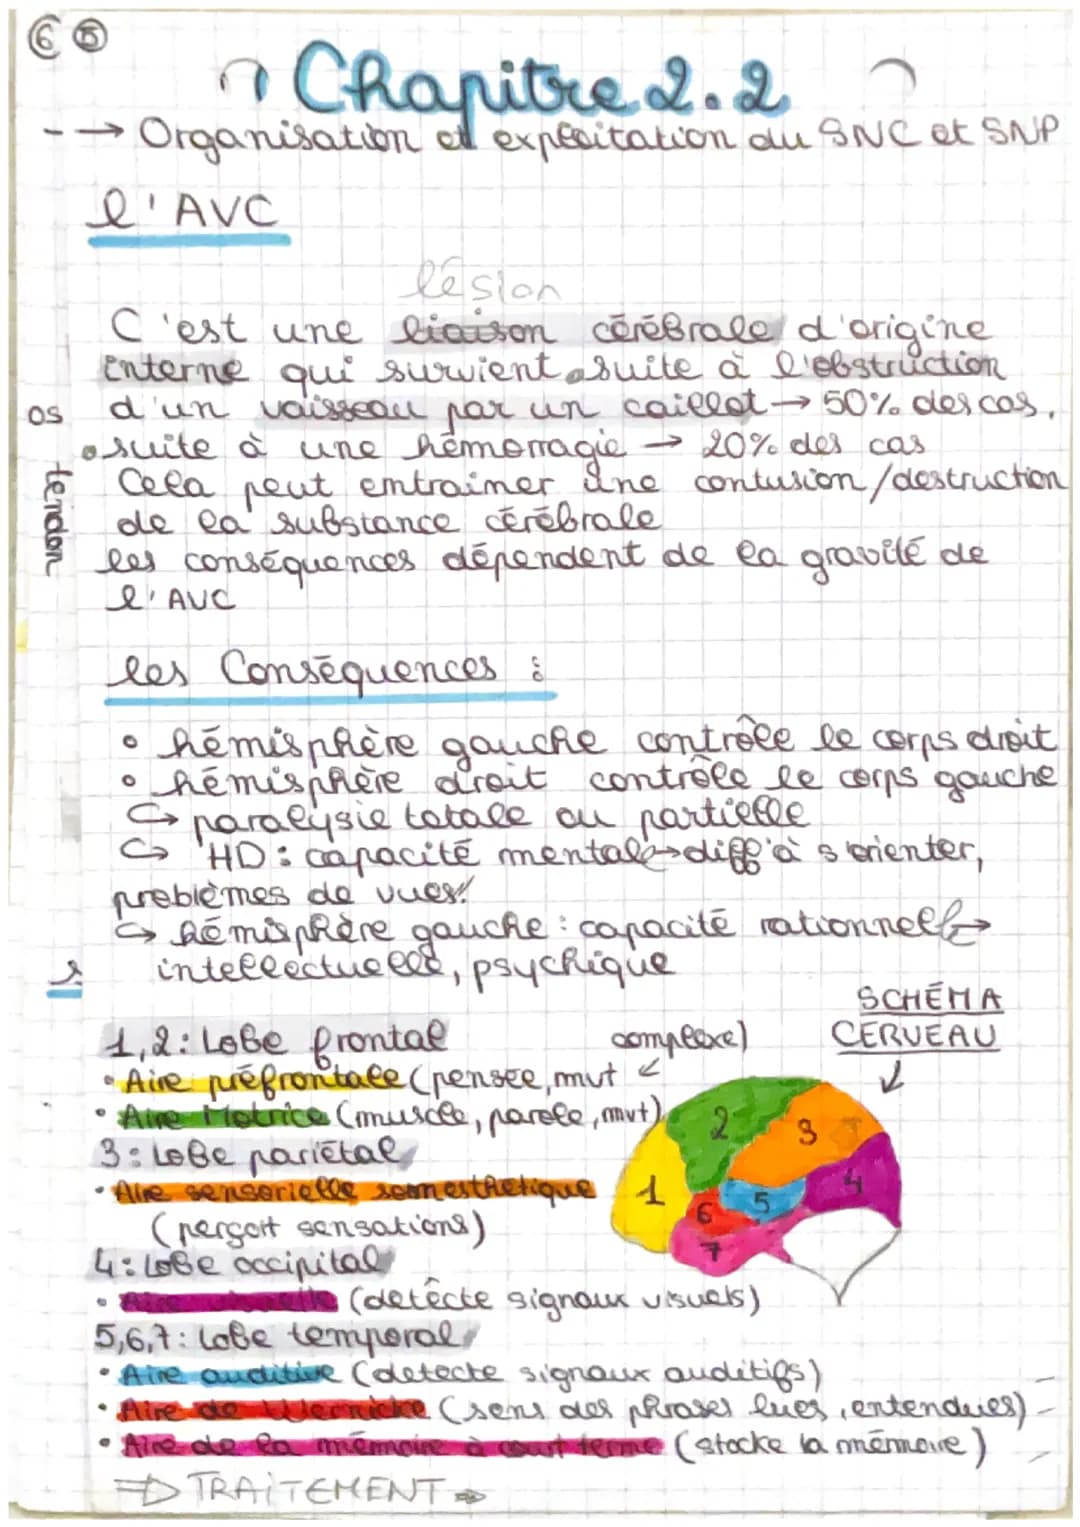 6 5
Chapitre 2.2
--→ Organisation et exploitation du SNC et SNP
l'AVC
lésion
C'est une liaison cérébrale d'origine
interne qui survient •suite à l'obstruction
d'un vaisseau par un caillot → 50% des cas,
•suite à une hémorragie → 20% des cas
Cela peut entrainer une contusion/destruction
de la substance cérébrale
les conséquences dépendent de la gravité de
l'AVC
os
tendon
les Conséquences :
• hémisphère gauche contrôle le corps droit
• hémisphère droit contrôle le corps gauche
↳ paralysie totale ou partielle
↳ HD : capacité mentale→diff à s'orienter,
problèmes de vues!
↳ hémisphère gauche : capacité rationnelle→
intellectuelle, psychique
SCHÉMA
CERVEAU
1,2: Lobe frontal
complexe)
• Aire préfrontale (pensée, mvt
• Aire Motrice (muscle, parole, mvt)
3: Lobe pariétal
• Aire sensorielle somesthetique
(perçoit sensations)
4: Lobe occipital
• Aire visuelle (detècte signaux visuels)
5,6,7: Lobe temporal
• Aire auditive (detecte signaux auditifs)
• Aire de Wernicke (sens des phrases lues, entendues)
• Aire de la mémoire à court terme (stocke la mémoire)
⇒ TRAITEMENT ⇒
1
2
3
4
5
6
7